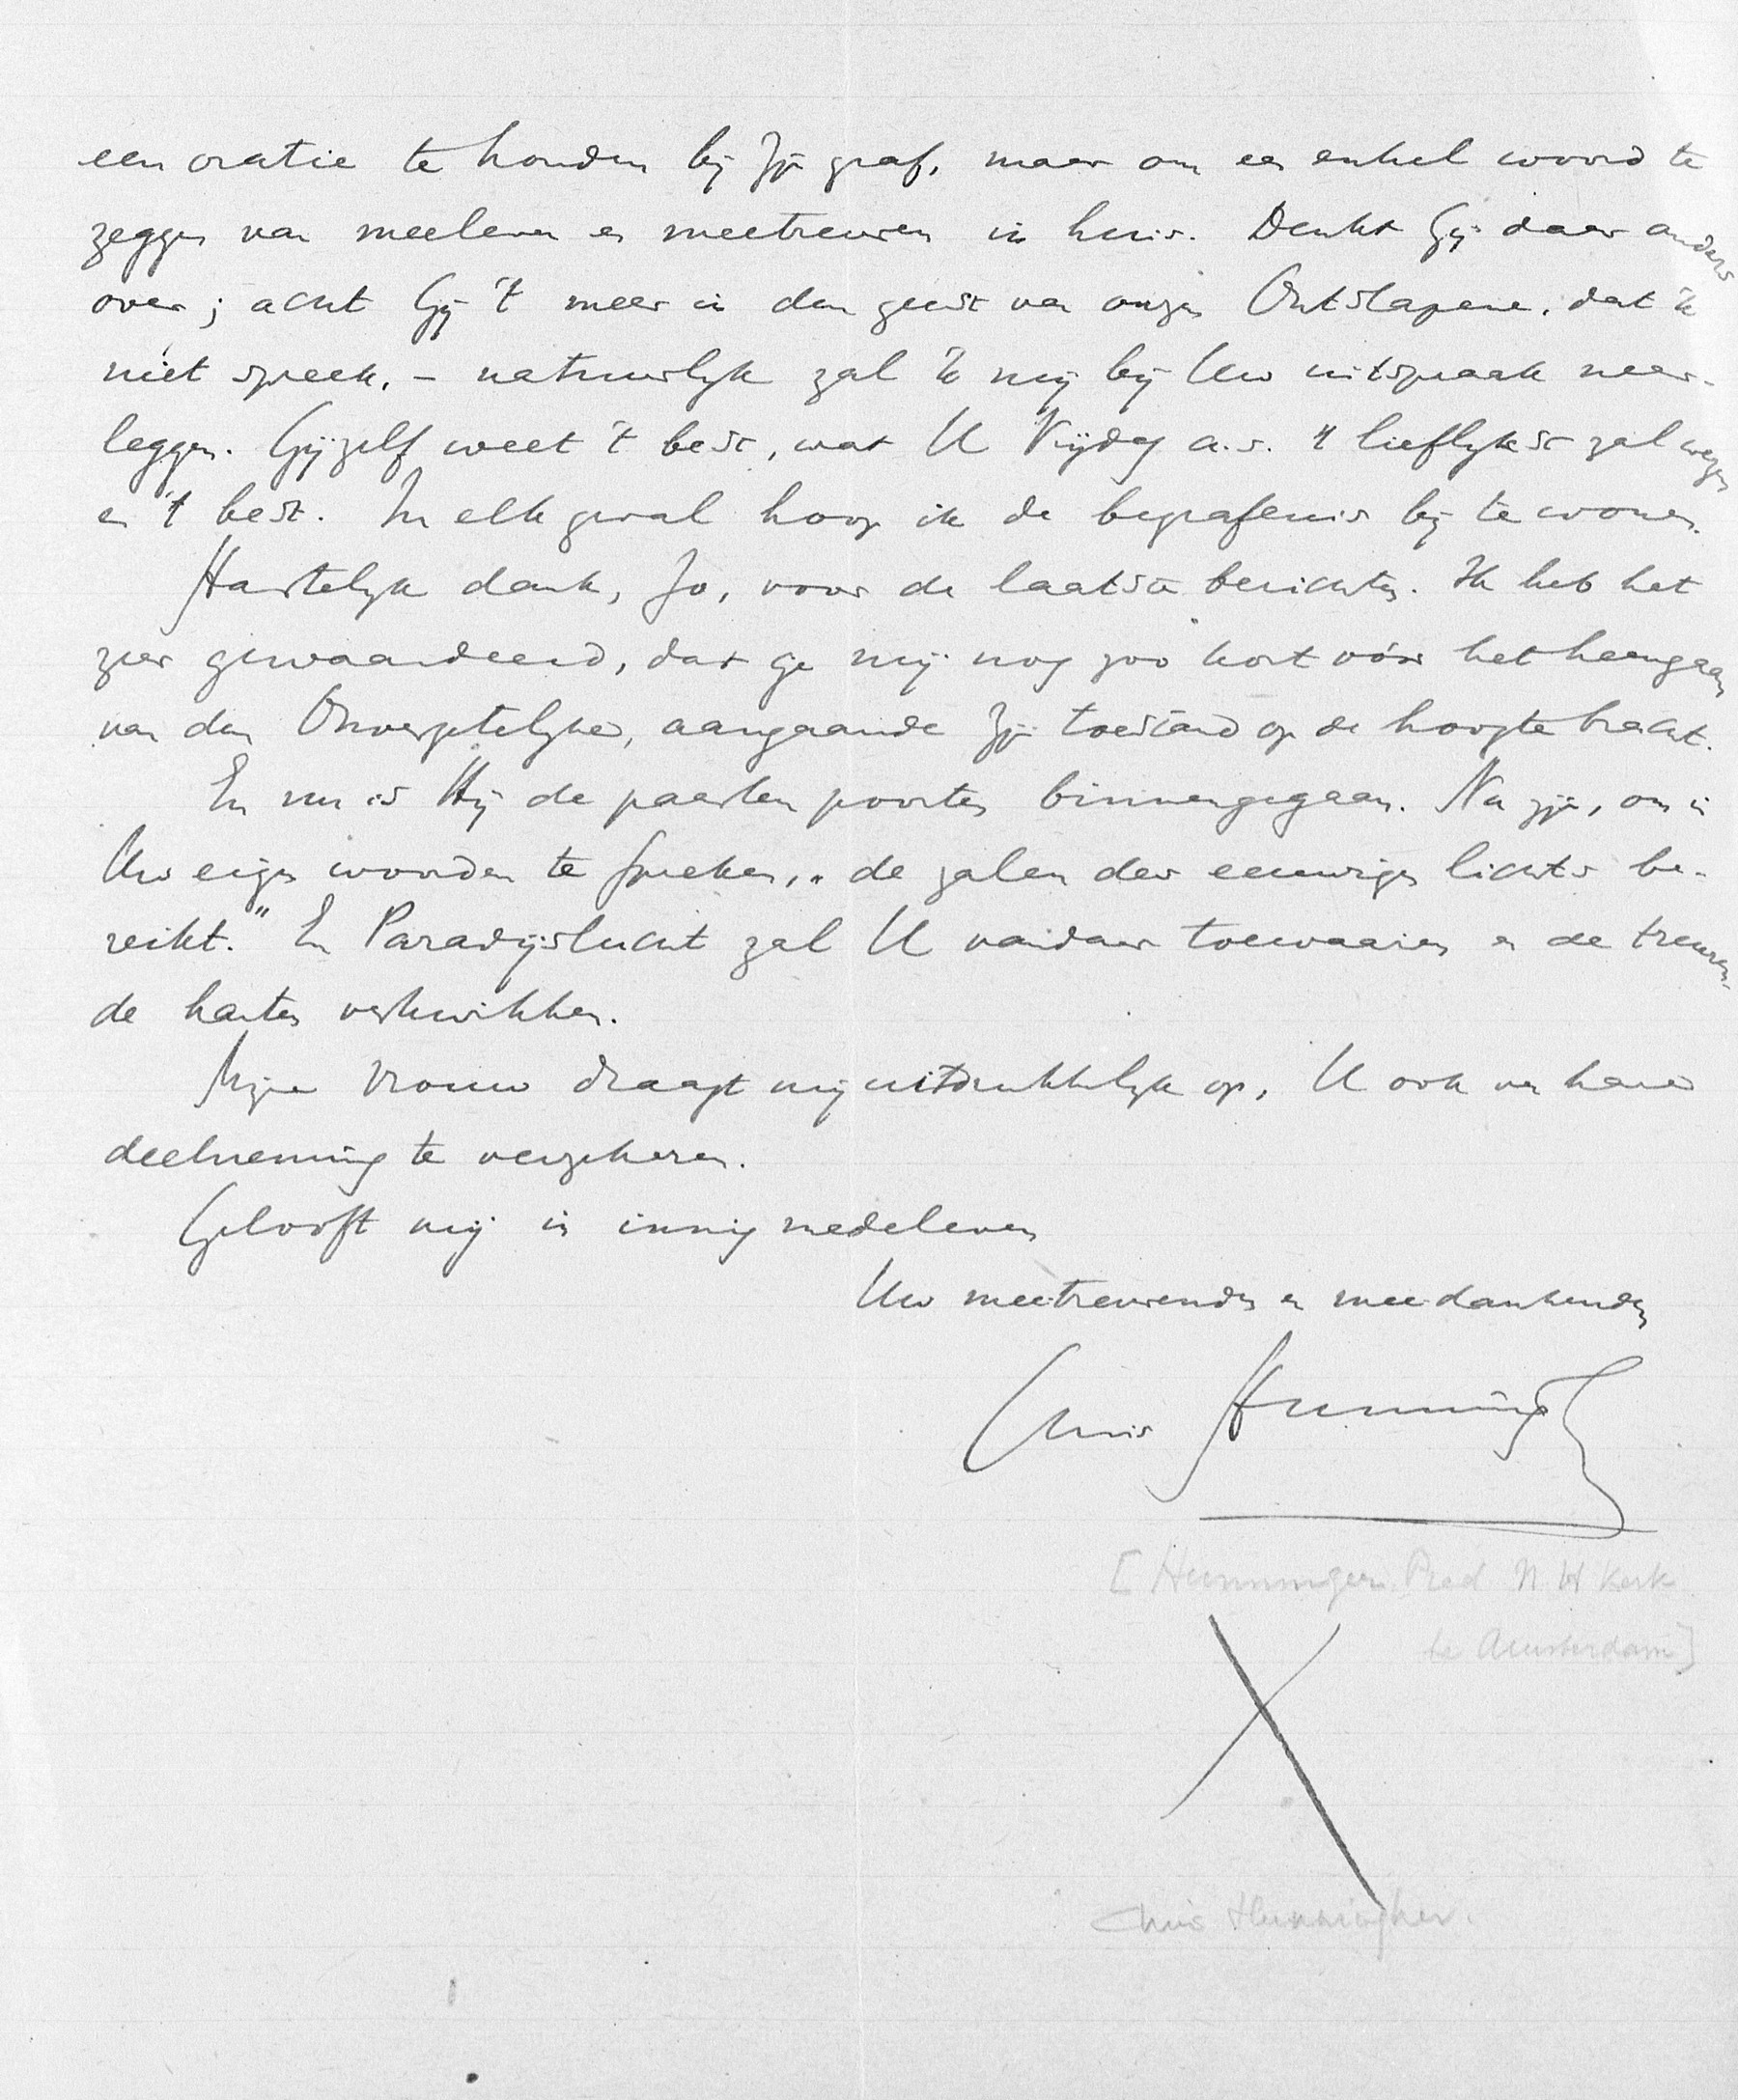 een oratie te houden bij Zijn graf, maar om een enkel woord te
zeggen van meeleven en meetreuren in huis. Denkt Gij daar anders
over; acht Gij 't meer in den geest van onzen Ontslapene, dat 'k
niet spreek, – natuurlijk zal 'k mij bij Uw uitspraak neer-
leggen. Gijzelf weet 't best, wat U Vrijdag a.s. 't lieflijkst zal wezen
en 't best. In elk geval hoop ik de begrafenis bij te wonen.
Hartelijk dank, Jo, voor de laatste berichten. Ik heb het
zeer gewaardeerd, dat ge mij nog zoo kort vóór het heengaan
van den Onvergetelijke, aangaande Zijn toestand op de hoogte bracht.
En nu is Hij de paarlen poorten binnengegaan. Na zijn, om in
Uw eigen woorden te spreken, „de zalen des eeuwigen lichts be-
reikt." En Paradijslucht zal U vandaar toewaaien en de treuren-
de harten verkwikken.
Mijne vrouw draagt mij uitdrukkelijk op, U ook van hare
deelneming te verzekeren.
Gelooft mij in innig medeleven
Uw meetreurenden en meedankenden
Chris Hunningher
[Hunningher Pred N H Kerk
te Amsterdam]
Chris Hunningher.